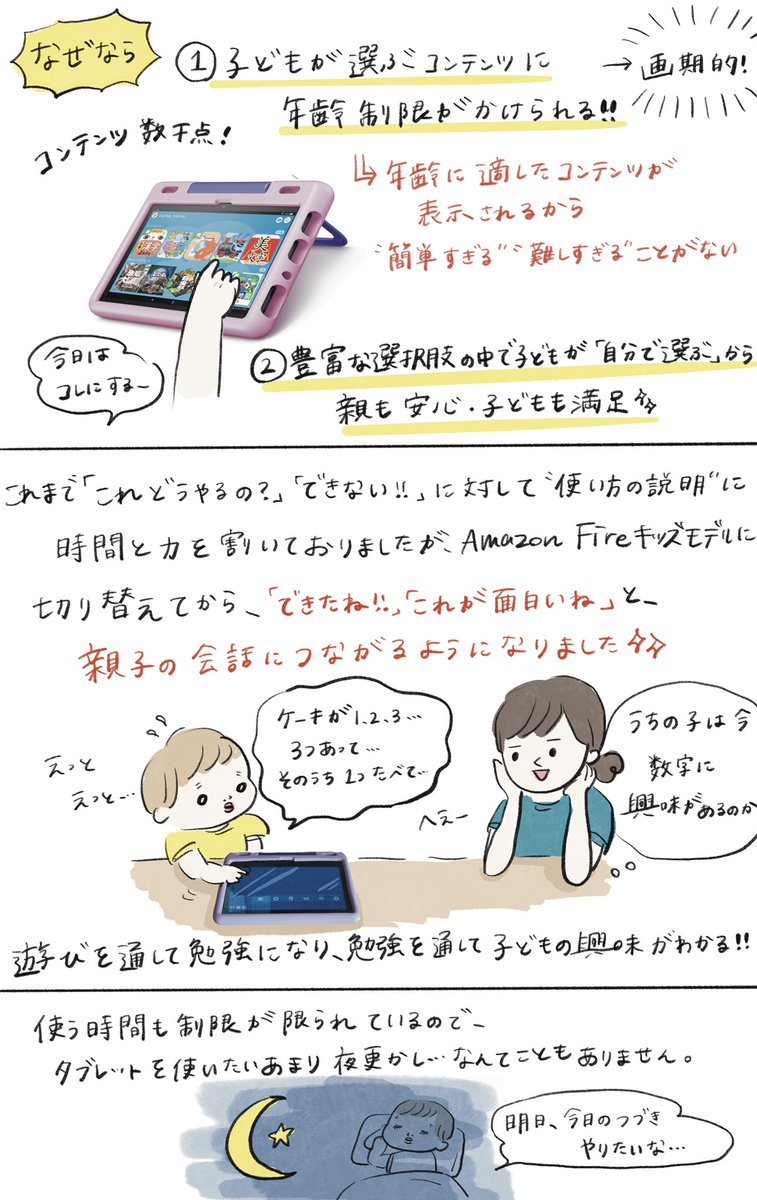 なぜなら
① 子どもが選ぶコンテンツに
年齢制限がかけられる!!
→ 画期的!
コンテンツ数千点!
↳ 年齢に適したコンテンツが
表示されるから
"簡単すぎる" "難しすぎる"ことがない
今日は
コレにする~
② 豊富な選択肢の中で子どもが「自分で選ぶ」から
親も安心・子どもも満足
これまで「これどうやるの?」「できない!!」に対して"使い方の説明"に
時間と力を割いておりましたが、Amazon Fireキッズモデルに
切り替えてから、「できたね!!」「これが面白いね」と、
親子の会話につながるようになりました
えっと
えっと…
ケーキが1、2、3…
3つあって…
そのうち1つたべて…
へぇー
うちの子は今
数字に
興味があるのか
遊びを通して勉強になり、勉強を通して子どもの興味がわかる!!
使う時間も制限が限られているので、
タブレットを使いたいあまり夜更かし…なんてこともありません。
明日、今日のつづき
やりたいな…